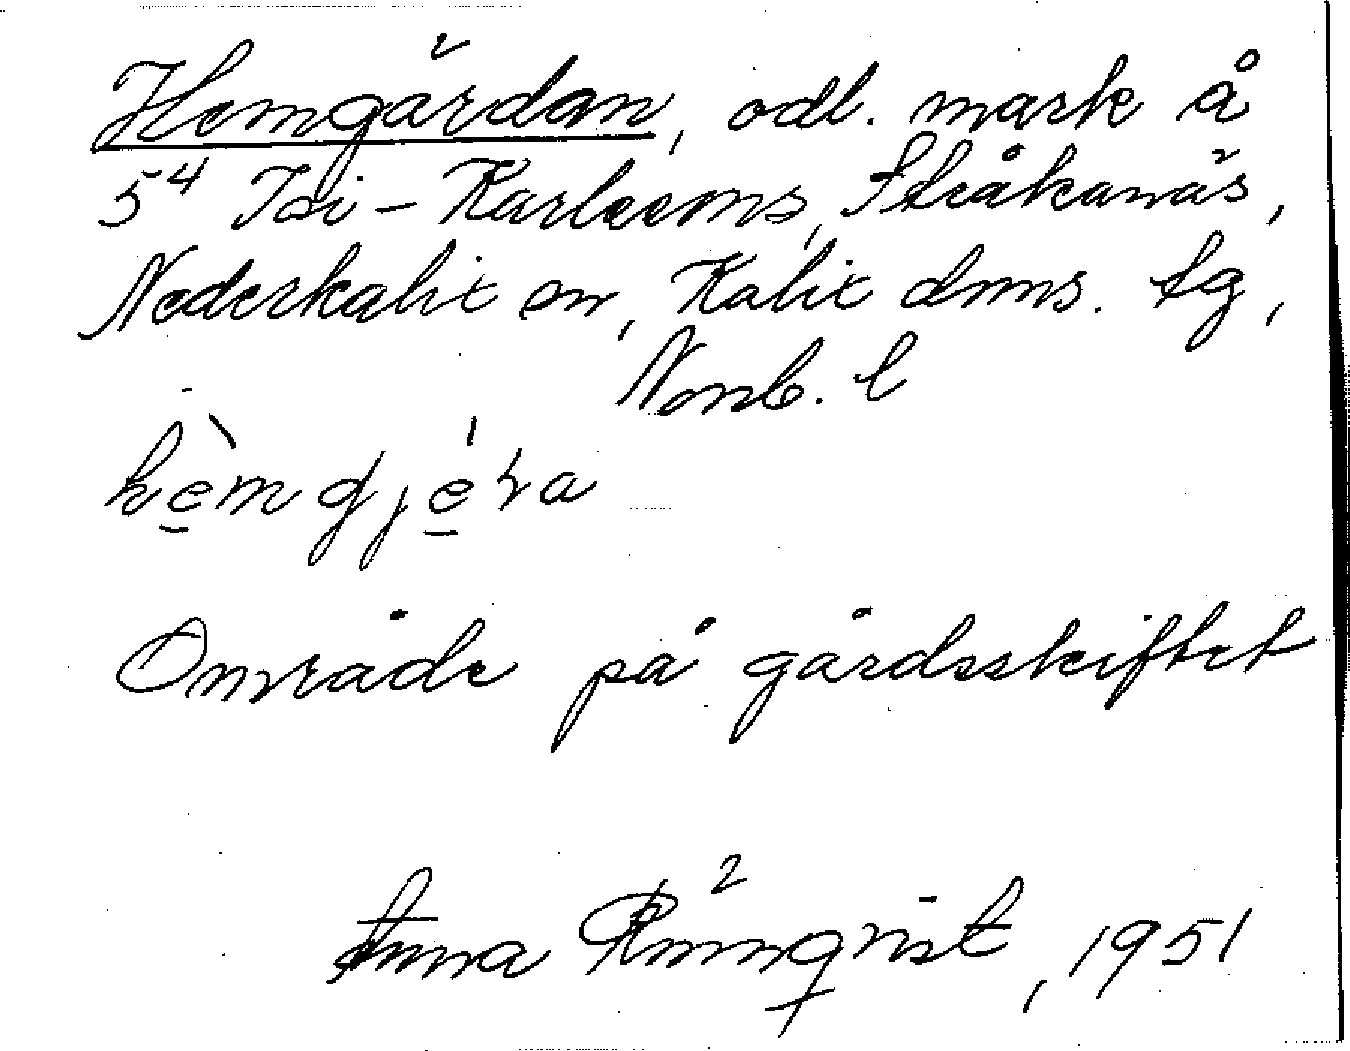 Hemgärdan, odl. mark å
5⁴ Isi-Karleems, Stråkanäs,
Nederkalix sn, Kalix dnms. tg,
Norrb. l
hèmgjéra
Område på gårdsskiftet
Anna Rönnqvist, 1951